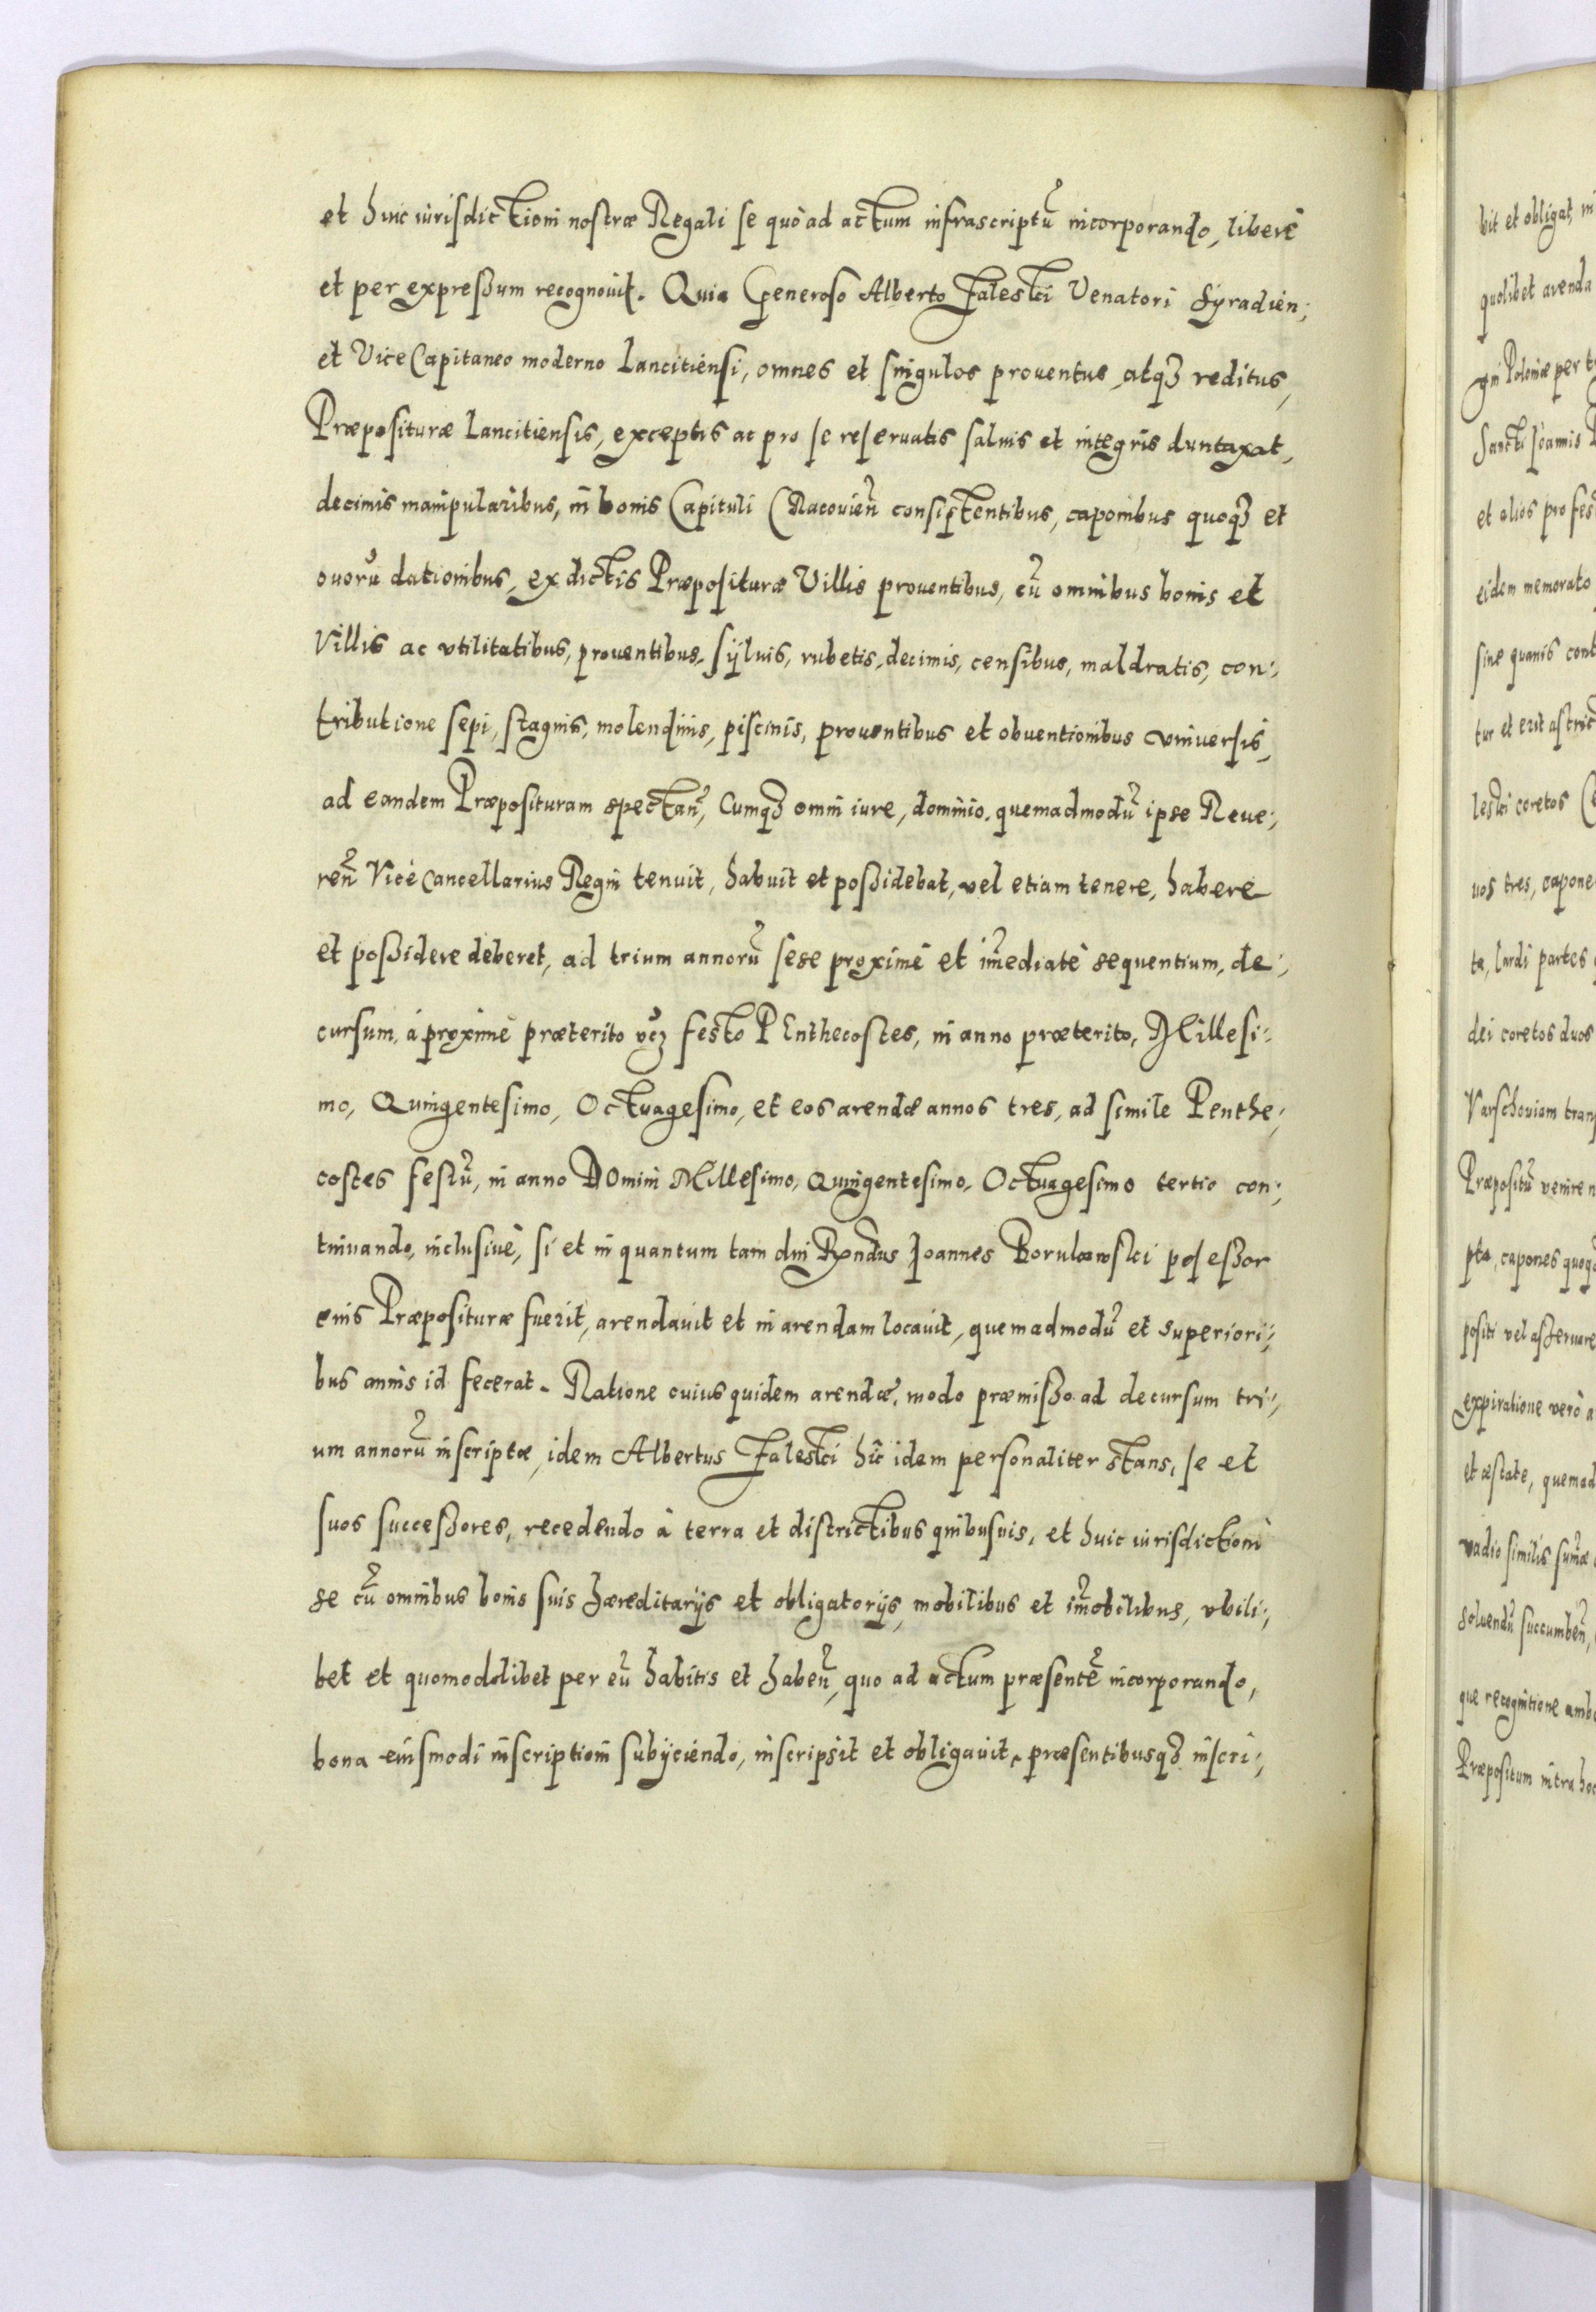 et huic iurisdictioni nostræ Regali se quò ad actum infrascriptũ incorporando, liberè
et per expreßum recognouit. Quia Generoso Alberto Zaleski Venatori Syradien:
et ViceCapitaneo moderno Lancitiensi, omnes et singulos prouentus atqȝ reditus,
Præposituræ Lancitiensis, exceptis ac pro se reseruatis saluis et integris duntaxat,
decimis manipularibus, in bonis Capituli Cracouien̄ consistentibus, caponibus quoqȝ et
ouorũ dationibus, ex dictis Præposituræ Villis prouentibus, cũ omnibus bonis et
Villis ac vtilitatibus, prouentibus, syluis, rubetis, decimis, censibus, maldratis, con:
tributione sepi, stagnis, molendinis, piscinis, prouentibus et obuentionibus vniuersis,
ad eandem Præposituram spectan̄, Cumqȝ omni iure, dominio, quemadmodũ ipse Reue:
ren̄ ViceCancellarius Regni tenuit, habuit et poßidebat, vel etiam tenere, habere
et poßidere deberet, ad trium annorũ sese proximè et im̃ediatè sequentium, de:
cursum, á proximè præterito vcȝ festo PEnthecostes, in anno præterito, Millesi:
mo, Quingentesimo, Octuagesimo, et eos arendæ annos tres, ad simile Penthe:
costes festũ, in anno DOmini Millesimo, Quingentesimo, Octuagesimo tertio con:
tinuando, inclusiuè, si et in quantum tam diu Rxndus Joannes Borukowski poseßor
eius Præposituræ fuerit, arendauit et in arendam locauit, quemadmodũ et superiori:
bus annis id fecerat. Ratione cuius quidem arendæ, modo præmißo ad decursum tri:
um annorũ inscriptæ, idem Albertus Zaleski hîc idem personaliter stans, se et
suos succeßores, recedendo à terra et districtibus quibusuis, et huic iurisdictioni
se cũ omnibus bonis suis hæreditarijs et obligatorijs, mobilibus et im̃obilibus, vbili:
bet et quomodolibet per eũ habitis et haben̄, quo ad actum præsentẽ incorporando,
bona eiusmodi inscriptioni subijciendo, inscripsit et obligauit, præsentibusqȝ inscri:
bit et obligat, in
quolibet arenda
gni Poloniæ per
Sancti Joannis
et alios pro fes
eidem memorato
sine quauis cont
tur et erit astric
leski coretos
uos tres, capone
ta, lardi partes
dei coretos duos
Varschouiam tran
Præpositũ venire
pta, capones quoq
positi vel asseruare
expiratione verò a
et æstate, quemad
vadio similis sum̃æ
soluendũ succumben̄,
que recognitione ambo
Præpositum intra hoc